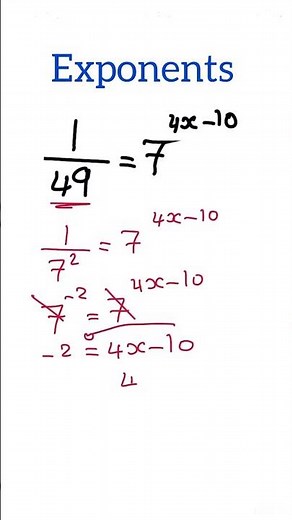 Exponents
1/49 = 7^(4x-10)
1/7² = 7^(4x-10)
7^(-2) = 7^(4x-10)
-2 = 4x-10
4